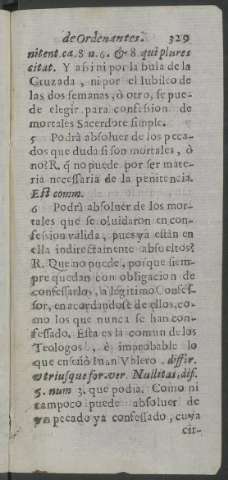 de Ordenantes. 329
nitent. ca. 8 n. 6. & 8. qui plures
citat. Y assi ni por la bula de la
Cruzada, ni por el Iubileo de
las dos semanas, ò otro, se pue-
de elegir para confession de
mortales Sacerdote simple.
5 Podrà absoluer de los peca-
dos que duda si son mortales, ò
no? R. q̃ no puede por ser mate-
ria necessaria de la penitencia.
Est comm.
6 Podrà absoluer de los mor-
tales que se oluidaron en con-
fession valida, pues ya estàn en
ella indirectamente absueltos?
R. Que no puede, porque siem-
pre quedan con obligacion de
confessarlos, à legitimo Confes-
sor, en acordandose de ellos, co-
mo los que nunca se han con-
fessado. Esta es la comun de los
Teologos, è improbable lo
que enseñò Iuan Vblero. differ.
vtriusque for. ver. Nullitas, dif.
5. num 3. que podia. Como ni
tampoco puede absoluer de
vn pecado ya confessado, cuya
cir-